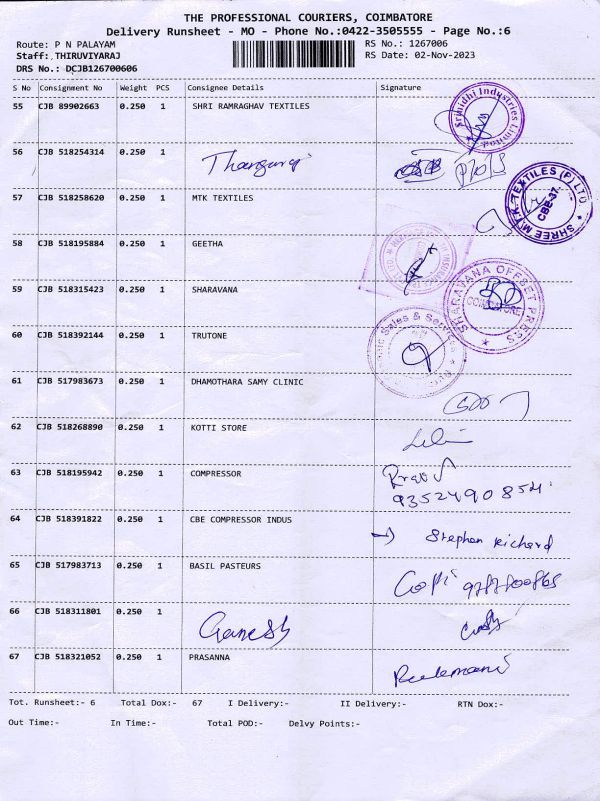 THE PROFESSIONAL COURIERS, COIMBATORE
Delivery Runsheet - MO - Phone No.:0422-3505555 - Page No.:6
Route: P N PALAYAM RS No.: 1267006
Staff: THIRUVIYARAJ RS Date: 02-Nov-2023
DRS No.: DCJB126700606
S No Consignment No Weight PCS Consignee Details Signature
55 CJB 89902663 0.250 1 SHRI RAMRAGHAV TEXTILES
56 CJB 518254314 0.250 1
57 CJB 518258620 0.250 1 MTK TEXTILES
SHREE M.T.K. TEXTILES (P) LTD
CBE-37.
58 CJB 518195884 0.250 1 GEETHA
59 CJB 518315423 0.250 1 SHARAVANA
SHARAVANA OFFSET PRESS
COIMBATORE
60 CJB 518392144 0.250 1 TRUTONE
Sales & Service
61 CJB 517983673 0.250 1 DHAMOTHARA SAMY CLINIC
62 CJB 518268890 0.250 1 KOTTI STORE
63 CJB 518195942 0.250 1 COMPRESSOR
64 CJB 518391822 0.250 1 CBE COMPRESSOR INDUS Stephen Richard
65 CJB 517983713 0.250 1 BASIL PASTEURS
66 CJB 518311801 0.250 1 Ganesh
67 CJB 518321052 0.250 1 PRASANNA
Tot. Runsheet:- 6 Total Dox:- 67 I Delivery:- II Delivery:- RTN Dox:-
Out Time:- In Time:- Total POD:- Delvy Points:-